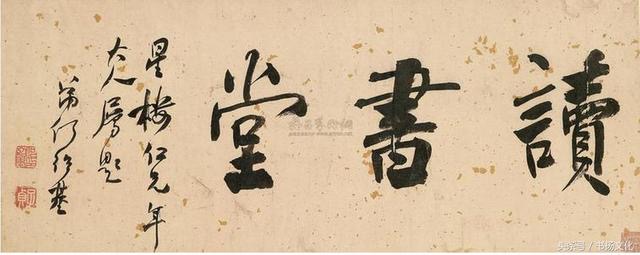 讀書堂
星樓仁兄年
大人屬題
弟何紹基
头条号／书扬文化